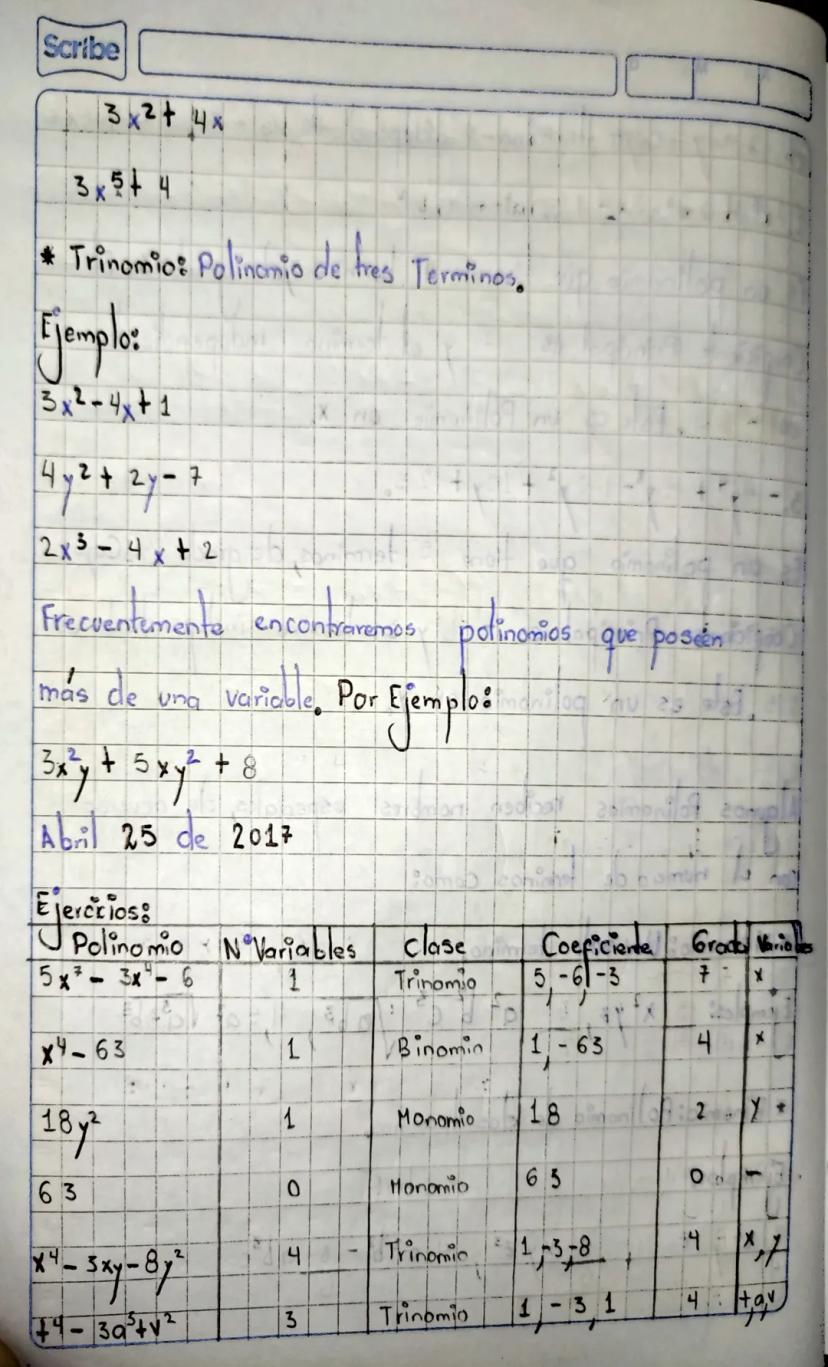 Scribe
3x² + 4x
3x⁵ + 4
* Trinomio: Polinomio de tres Terminos.
Ejemplo:
3x² - 4x + 1
4y² + 2y - 7
2x³ - 4x + 2
Frecuentemente encontraremos polinomios que poseén
más de una variable. Por Ejemplo:
3x²y + 5xy² + 8
Abril 25 de 2017
Ejercicios:
Polinomio N° Variables Clase Coeficiente Grado Variables
5x⁷ - 3x⁴ - 6 1 Trinomio 5, -6, -3 7 x
x⁴ - 63 1 Binomio 1, -63 4 x
18y² 1 Monomio 18 2 y
63 0 Monomio 63 0 -
x⁴ - 3xy - 8y² 4 Trinomio 1, -3, -8 4 x, y
t⁴ - 3a³ + v² 3 Trinomio 1, -3, 1 4 t, a, v